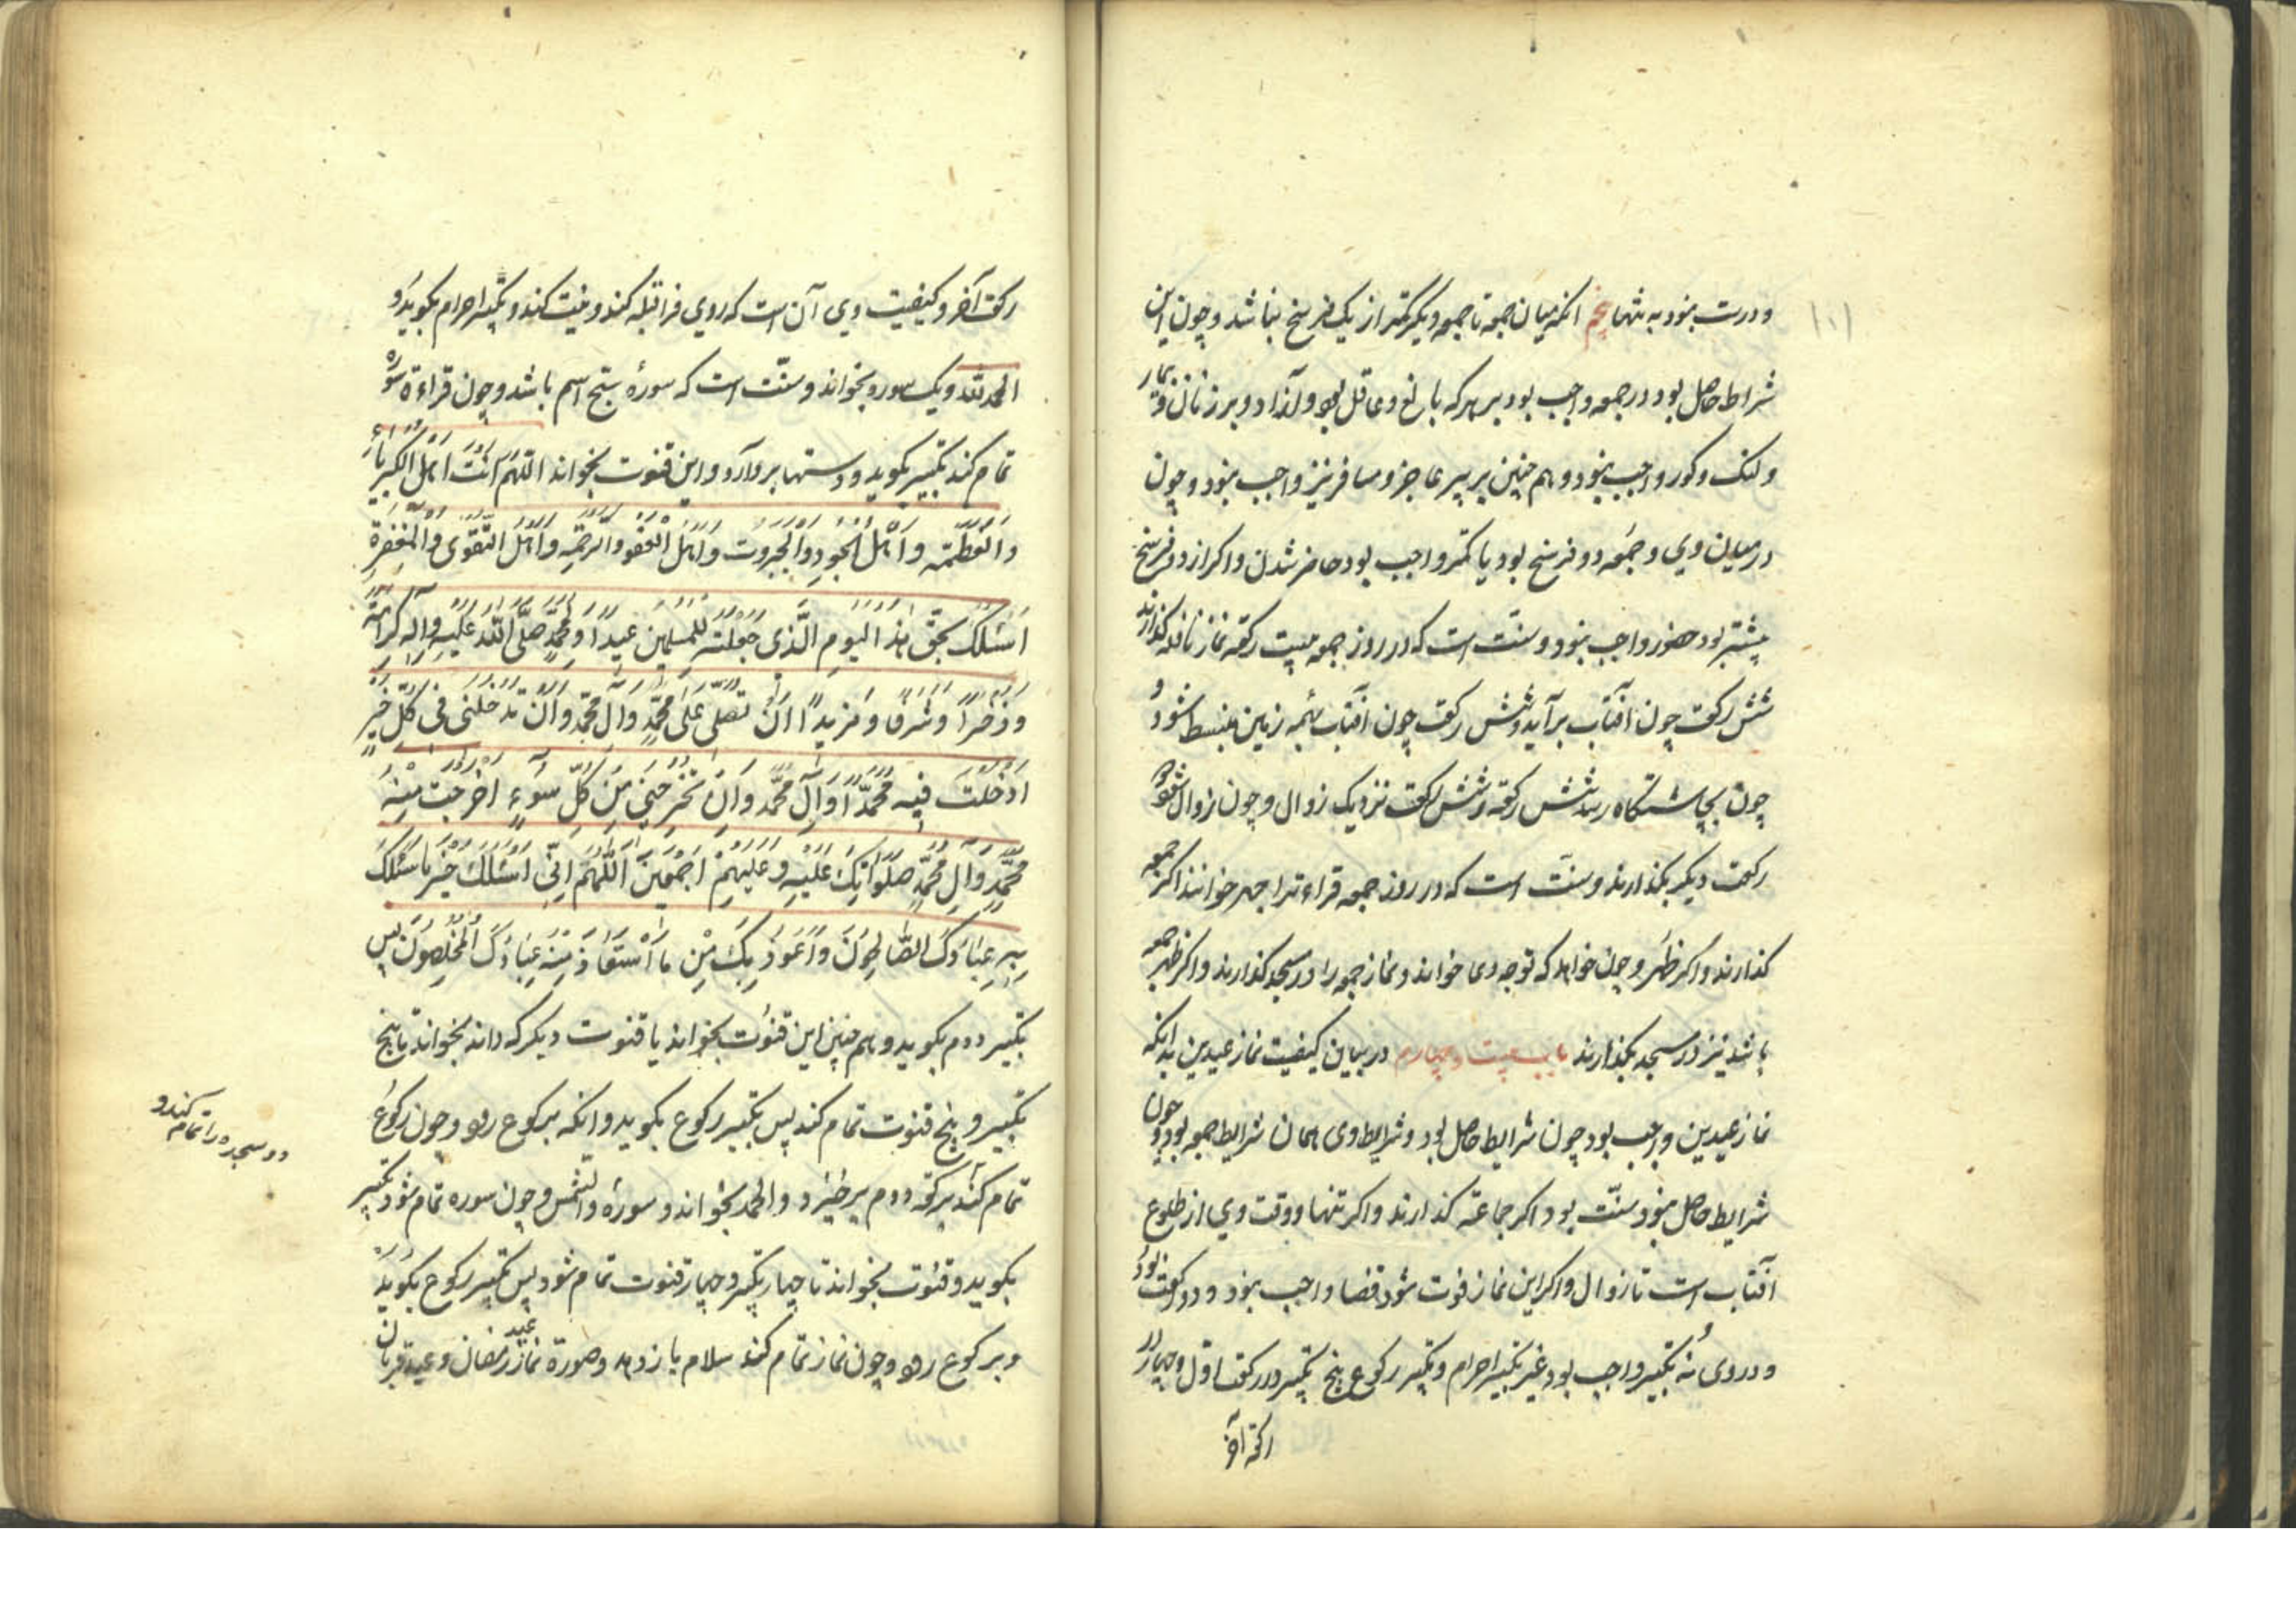 ۱۰۱
و درست نبود به تنها پنجم آنکه میان جمعه تا جمعه دیگر کمتر از یک فرسخ نباشد و چون این
شرایط حاصل بود در جمعه واجب بود بر هر که بالغ و عاقل بود و آزاد و بر زنان و بیمار
و لنک و کور واجب نبود و هم چنین بر پیر عاجز و مسافر نیز واجب نبود و چون
در میان وی و جمعه دو فرسخ بود یا کمتر واجب بود حاضر شدن و اکر از دو فرسخ
بیشتر بود حضور واجب نبود و سنّت است که در روز جمعه بیست رکعة نماز نافله کذارند
شش رکعت چون آفتاب برآید و شش رکعت چون آفتاب بهمه زمین منبسط شود و
چون بچاشتکاه رسد شش رکعة و شش رکعت نزدیک زوال و چون زوال شود دو
رکعت دیکر بکذارند و سنّت است که در روز جمعه قراءة را جهر خوانند اکر جمعه
کذارند و اکر ظهر و چون خواهد که توجه دعا خواند و نماز جمعه را در مسجد کذارند و اکر ظهر جمعه
باشد نیز در مسجد بکذارند باب بیست و چهارم در بیان کیفیت نماز عیدین بدانکه
نماز عیدین واجب بود چون شرایط حاصل بود و شرایط وی همان شرایط جمعه بود و چون
شرایط حاصل نبود سنّت بود اکر جماعة کذارند و اکر تنها و وقت وی از طلوع
آفتاب است تا زوال و اکر این نماز فوت شود قضا واجب نبود و دو رکعت بود
و در وی نُه تکبیر واجب بود غیر تکبیر احرام و تکبیر رکوع پنج تکبیر در رکعت اوّل و چهار در
رکعة آخر
رکعت آخر و کیفیت وی آن است که روی فرا قبله کند و نیت کند و تکبیر احرام بکوید و
الحمد لله و یک سوره بخواند و سنّت است که سورهٔ سبّح اسم باشد و چون قراءة سوره
تمام کند تکبیر بکوید و دستها بردارد و این قنوت بخواند اللّهم انت اهل الکبریاء
و العظمة و اهل الجود و الجبروت و اهل العفو و الرّحمة و اهل التّقوی و المغفرة
اسئلک بحقّ هذا الیوم الّذی جعلته للمسلمین عیداً و لمحمّدٍ صلّی الله علیه و آله کرامةً
و ذخراً و شرفاً و مزیداً ان تصلّی علی محمّدٍ و آل محمّدٍ و ان تدخلنی فی کلّ خیرٍ
ادخلت فیه محمّداً و آل محمّد و ان تخرجنی من کلّ سوءٍ اخرجت منه
محمّدٍ و آل محمّدٍ صلواتک علیه و علیهم اجمعین اللّهم انّی اسئلک خیر ما سئلک
به عبادک الصّالحون و اعوذ بک من ما استعاذ منه عبادک المخلصون پس
تکبیر دوم بکوید و هم چنین این قنوت بخواند یا قنوت دیکر که داند بخواند تا پنج
تکبیر و پنج قنوت تمام کند پس تکبیر رکوع بکوید و آنکه برکوع رود و چون رکوع
دو سجده را تمام کند و
تمام کند برکعة دوم برخیزد و الحمد بخواند و سورهٔ والشّمس و چون سوره تمام شود تکبیر
بکوید و قنوت بخواند تا چهار تکبیر و چهار قنوت تمام شود پس تکبیر رکوع بکوید
و برکوع رود و چون نماز تمام کند سلام باز دهد و صورة نماز عید رمضان و عید قربان